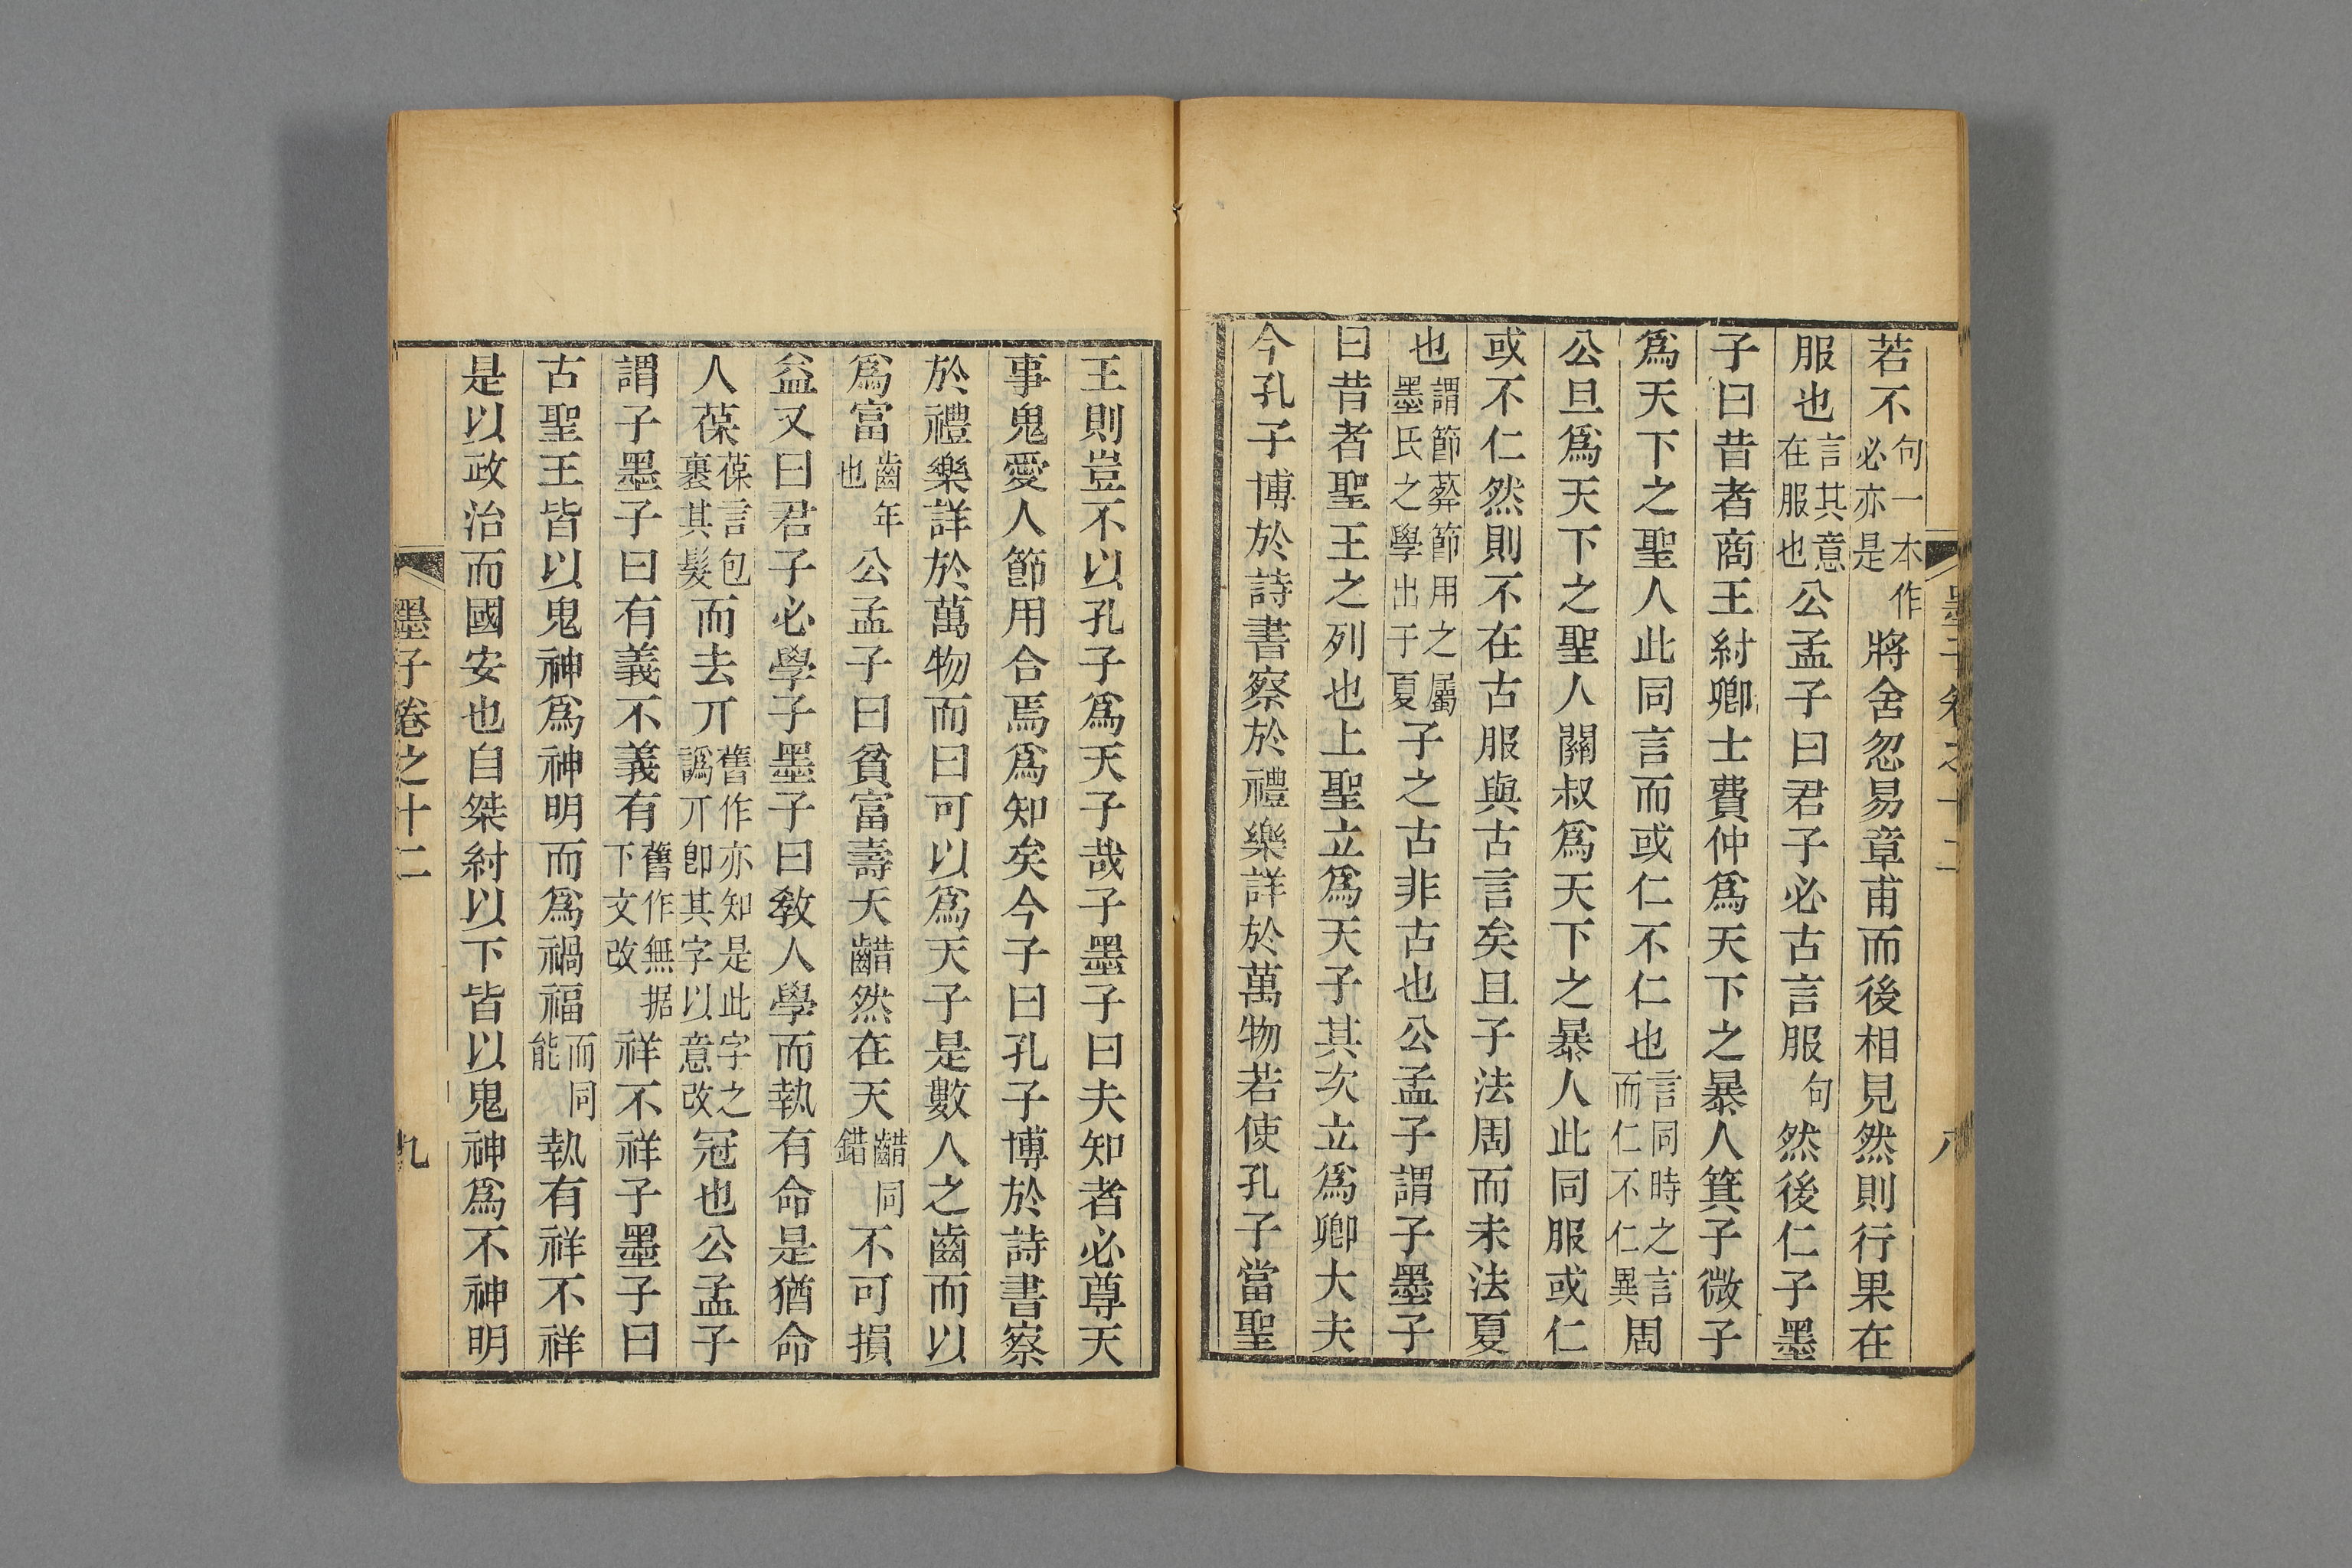 墨子卷之十二
八
若不句一本作必亦是將舍忽易章甫而後相見然則行果在
服也言其意在服也公孟子曰君子必古言服句然後仁子墨
子曰昔者商王紂卿士費仲爲天下之暴人箕子微子
爲天下之聖人此同言而或仁不仁也言同時之言而仁不仁異周
公旦爲天下之聖人關叔爲天下之暴人此同服或仁
或不仁然則不在古服與古言矣且子法周而未法夏
也謂節葬節用之屬墨氏之學出于夏子之古非古也公孟子謂子墨子
曰昔者聖王之列也上聖立爲天子其次立爲卿大夫
今孔子博於詩書察於禮樂詳於萬物若使孔子當聖
王則豈不以孔子爲天子哉子墨子曰夫知者必尊天
事鬼愛人節用合焉爲知矣今子曰孔子博於詩書察
於禮樂詳於萬物而曰可以爲天子是數人之齒而以
爲富齒年也公孟子曰貧富壽夭齰然在天齰同錯不可損
益又曰君子必學子墨子曰敎人學而執有命是猶命
人葆葆言包裹其髮而去丌舊作亦知是此字之譌丌卽其字以意改冠也公孟子
謂子墨子曰有義不義有舊作無据下文改祥不祥子墨子曰
古聖王皆以鬼神爲神明而爲禍福而同能執有祥不祥
是以政治而國安也自桀紂以下皆以鬼神爲不神明
墨子卷之十二
九